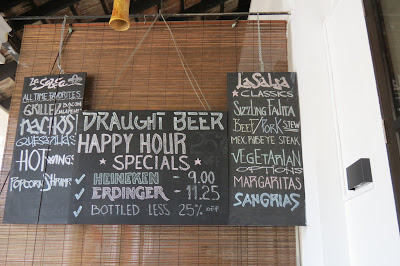 La Salsa
ALL TIME FAVORITES
GRILLED
BACON
JALAPENO
NACHOS
QUESADILLAS
HOT WINGS
POPCORN SHRIMP
DRAUGHT BEER
HAPPY HOUR
SPECIALS
HEINEKEN - 9.00
ERDINGER - 11.25
BOTTLED LESS 25% OFF
La Salsa
CLASSICS
SIZZLING FAJITA
BEEF/PORK STEW
MEX. RIBEYE STEAK
VEGETARIAN
OPTIONS
MARGARITAS
SANGRIAS